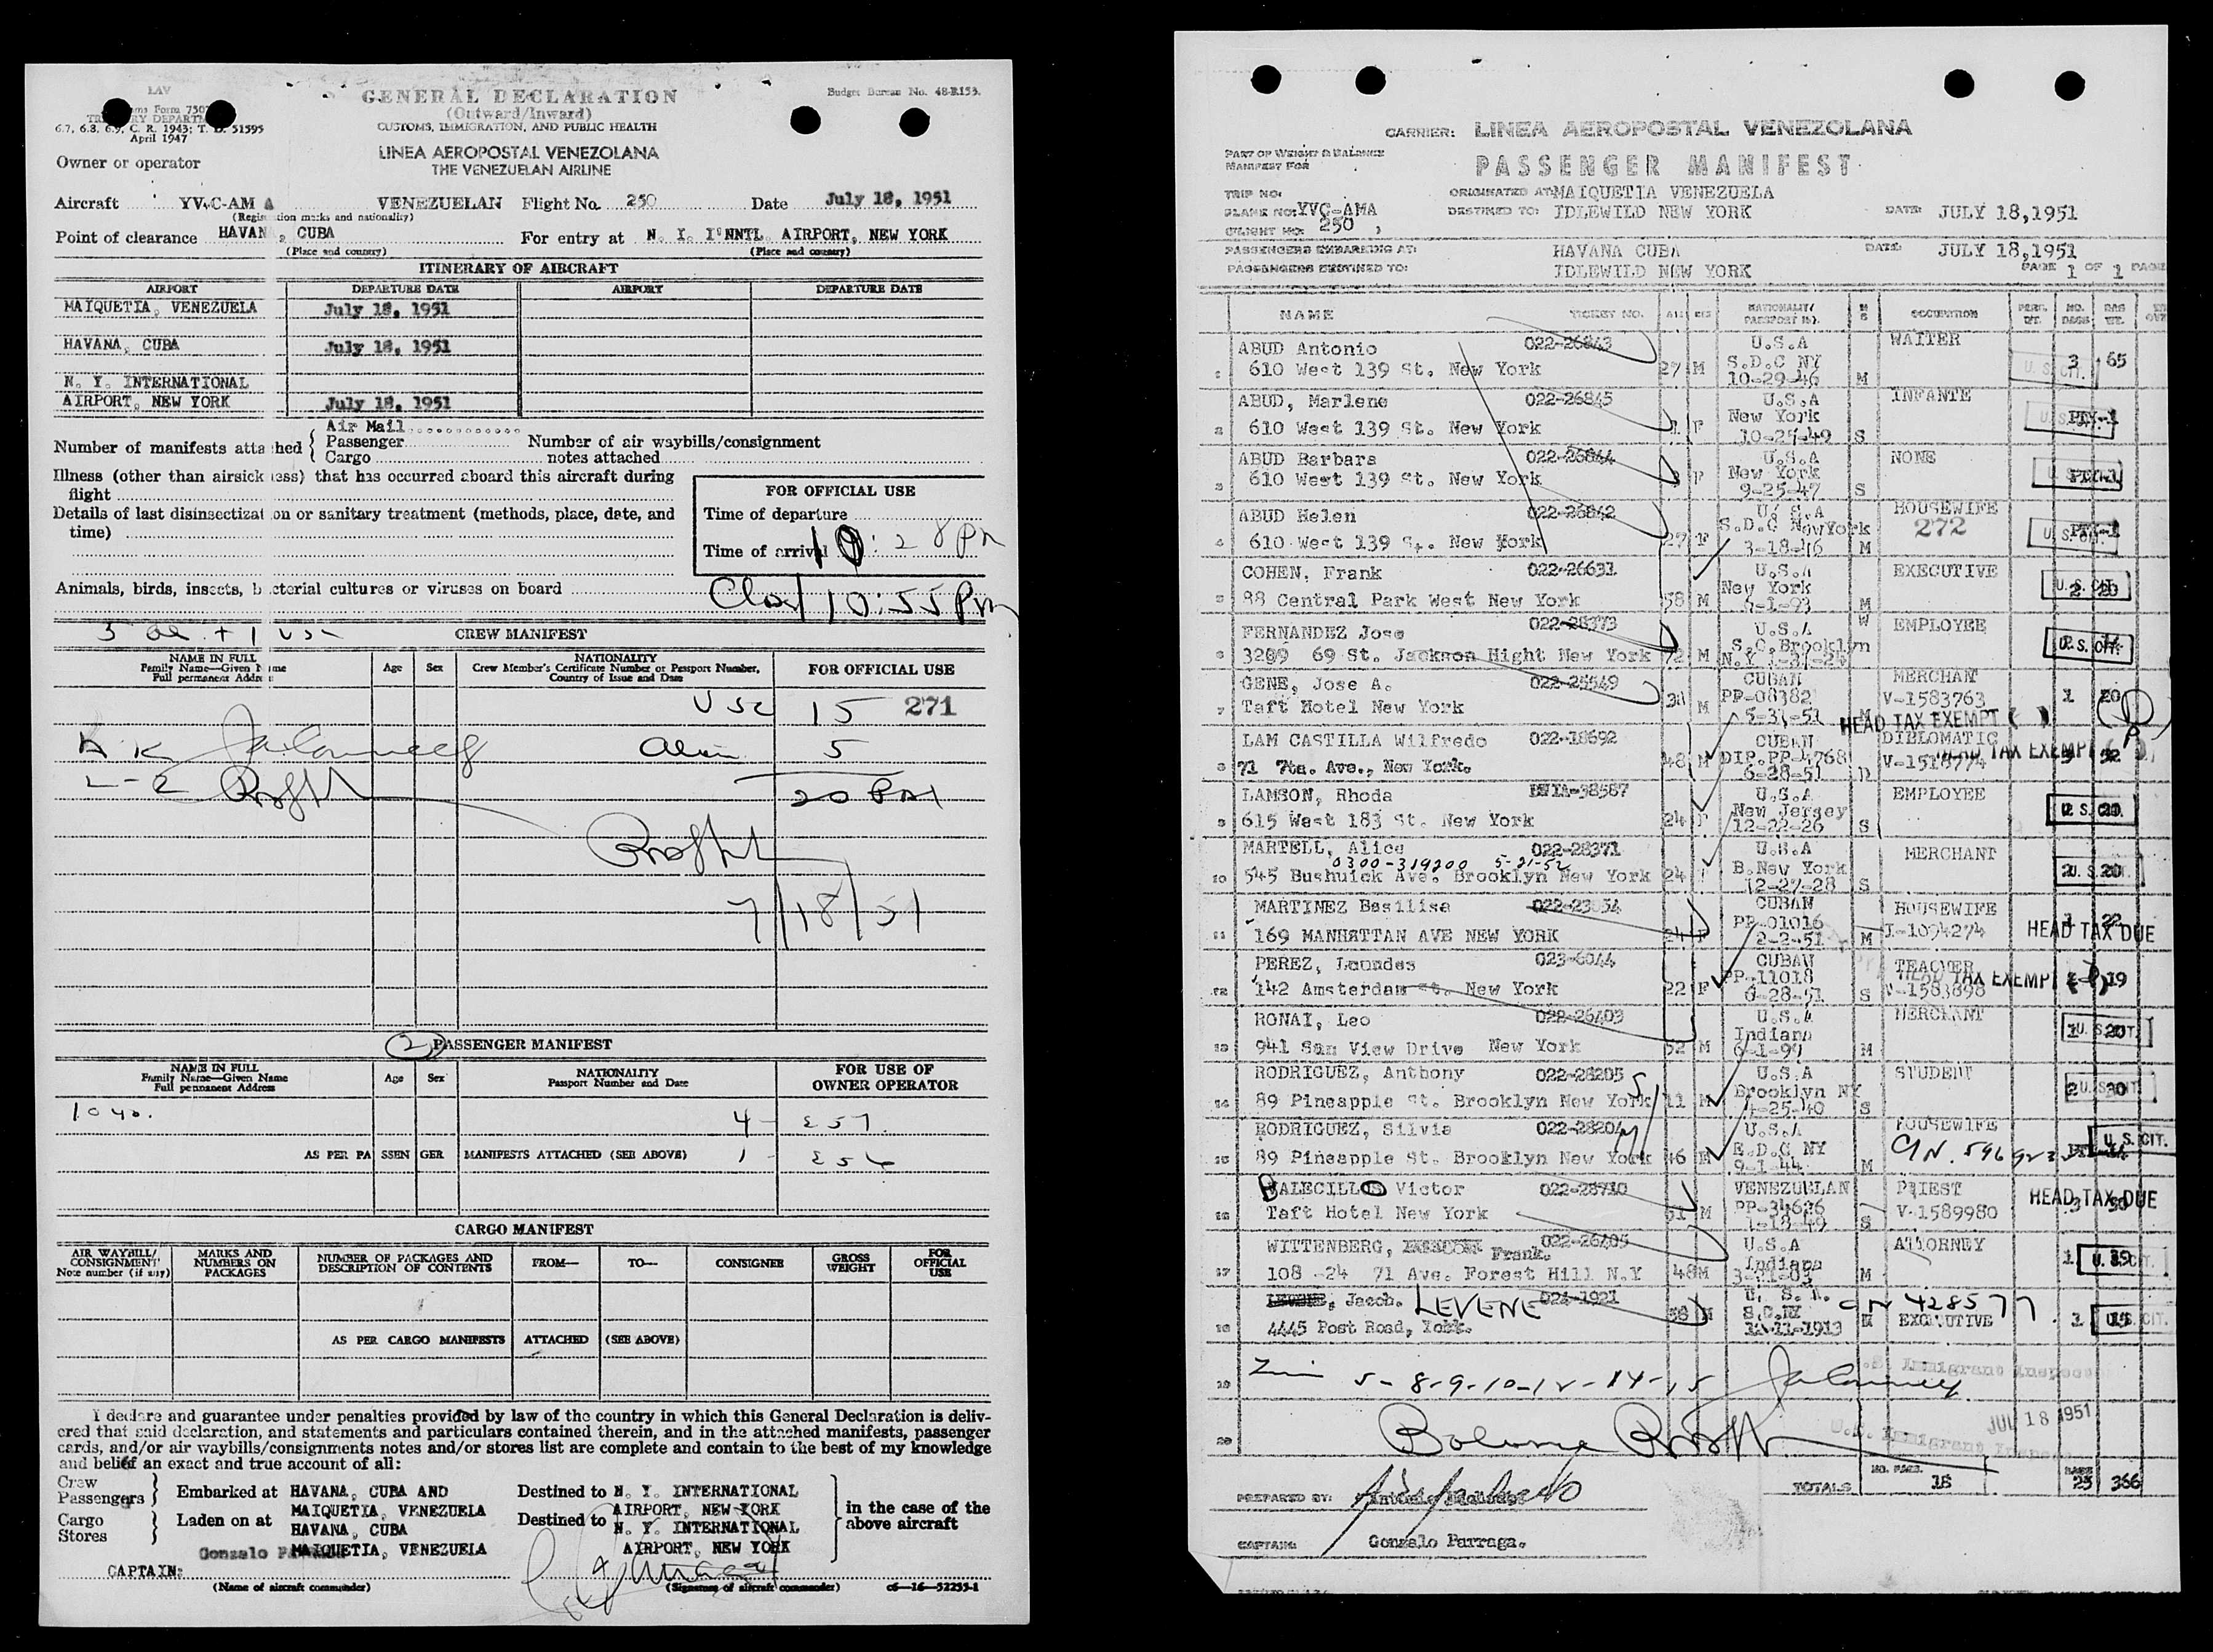 LAV
Customs Form 7507
TREASURY DEPARTMENT
6.7, 6.8, 6.9, C. R. 1943; T. D. 51595
April 1947
GENERAL DECLARATION
(Outward/Inward)
CUSTOMS, IMMIGRATION, AND PUBLIC HEALTH
Budget Bureau No. 48-R153.
Owner or operator
LINEA AEROPOSTAL VENEZOLANA
THE VENEZUELAN AIRLINE
Aircraft YV-C-AM A VENEZUELAN Flight No. 250 Date July 18, 1951
(Registration marks and nationality)
Point of clearance HAVANA, CUBA For entry at N. Y. I'NNTL AIRPORT, NEW YORK
(Place and country) (Place and country)
ITINERARY OF AIRCRAFT
AIRPORT DEPARTURE DATE AIRPORT DEPARTURE DATE
MAIQUETIA, VENEZUELA July 18, 1951
HAVANA, CUBA July 18, 1951
N. Y. INTERNATIONAL
AIRPORT, NEW YORK July 18, 1951
Number of manifests attached
Air Mail
Passenger
Cargo
Number of air waybills/consignment
notes attached
Illness (other than airsickness) that has occurred aboard this aircraft during
flight
Details of last disinsectization or sanitary treatment (methods, place, date, and
time)
FOR OFFICIAL USE
Time of departure
Time of arrival 10:28 Pm
Animals, birds, insects, bacterial cultures or viruses on board
10:55 Pm
CREW MANIFEST
NAME IN FULL
Family Name—Given Name
Full permanent Address
Age Sex
NATIONALITY
Crew Member's Certificate Number or Passport Number,
Country of Issue and Date
FOR OFFICIAL USE
USC 15 271
5
7/18/51
2 PASSENGER MANIFEST
NAME IN FULL
Family Name—Given Name
Full permanent Address
Age Sex
NATIONALITY
Passport Number and Date
FOR USE OF
OWNER OPERATOR
AS PER PASSENGER MANIFESTS ATTACHED (SEE ABOVE)
CARGO MANIFEST
AIR WAYBILL/
CONSIGNMENT
Note number (if any)
MARKS AND
NUMBERS ON
PACKAGES
NUMBER OF PACKAGES AND
DESCRIPTION OF CONTENTS
FROM— TO— CONSIGNEE
GROSS
WEIGHT
FOR
OFFICIAL
USE
AS PER CARGO MANIFESTS ATTACHED (SEE ABOVE)
I declare and guarantee under penalties provided by law of the country in which this General Declaration is deliv-
ered that said declaration, and statements and particulars contained therein, and in the attached manifests, passenger
cards, and/or air waybills/consignments notes and/or stores list are complete and contain to the best of my knowledge
and belief an exact and true account of all:
Crew
Passengers
Embarked at HAVANA, CUBA AND
MAIQUETIA, VENEZUELA
Destined to N. Y. INTERNATIONAL
AIRPORT, NEW YORK
Cargo
Stores
Laden on at HAVANA, CUBA
MAIQUETIA, VENEZUELA
Destined to N. Y. INTERNATIONAL
AIRPORT, NEW YORK
in the case of the
above aircraft
CAPTAIN: Gonzalo
(Name of aircraft commander) (Signature of aircraft commander) c6—16—52255-1
CARRIER: LINEA AEROPOSTAL VENEZOLANA
PART OF WEIGHT & BALANCE
MANIFEST FOR
PASSENGER MANIFEST
TRIP NO. ORIGINATED AT: MAIQUETIA VENEZUELA
PLANE NO: YVC-AMA DESTINED TO: IDLEWILD NEW YORK DATE: JULY 18,1951
FLIGHT NO: 250
PASSENGERS EMBARKING AT: HAVANA CUBA DATE: JULY 18,1951
PASSENGERS DESTINED TO: IDLEWILD NEW YORK PAGE 1 OF 1 PAGE
NAME TICKET NO. SEX NATIONALITY/ OCCUPATION
ABUD Antonio 022-26843 U.S.A WAITER
1 610 West 139 St. New York 27 M S.D.C NY 3 65
10-29-46 M
ABUD, Marlene 022-26845 U.S.A INFANTE
2 610 West 139 St. New York 1 F New York
10-25-49 S
ABUD Barbara 022-26844 U.S.A NONE
3 610 West 139 St. New York F New York
9-25-47 S
ABUD Helen 022-26842 U.S.A HOUSEWIFE
4 610 West 139 St. New York 27 F S.D.C NewYork 272
3-18-46 M
COHEN, Frank 022-26631 U.S.A EXECUTIVE
5 88 Central Park West New York 58 M New York U.S. CIT.
M
FERNANDEZ Jose 022-28373 U.S.A EMPLOYEE
6 3209 69 St. Jackson Hight New York 72 M S.C. Brooklyn U.S. CIT.
GENE, Jose A. 022-25549 CUBAN MERCHAN
7 Taft Hotel New York M PP-08382 V-1583763 1 20
5-31-51 HEAD TAX EXEMPT
LAM CASTILLA Wilfredo 022-18692 CUBAN DIBLOMATIC
8 71 7ta. Ave., New York. 48 M DIP.PP-4768 HEAD TAX EXEMPT
6-28-51
LAMSON, Rhoda 38587 U.S.A EMPLOYEE
9 615 West 183 St. New York 24 F New Jersey
12-22-26 S
MARTELL, Alice 022-28371 U.S.A MERCHANT
0300-319200 5-21-52
10 545 Bushuick Ave. Brooklyn New York 24 B.New York
12-27-28 S
MARTINEZ Basilisa CUBAN HOUSEWIFE
11 169 MANHATTAN AVE NEW YORK 24 F PP-01016 I-1094274 HEAD TAX DUE
2-2-51 M
PEREZ, Lourdes 023-6044 CUBAN TEACHER
12 142 Amsterdam St. New York 22 F PP-11018 V-1583898 HEAD TAX EXEMPT 19
6-28-51 S
RONAI, Leo 022-26403 U.S.A MERCHANT
13 941 San View Drive New York 52 M Indiana
M
RODRIGUEZ, Anthony 022-28205 U.S.A STUDENT
14 89 Pineapple St. Brooklyn New York 11 M Brooklyn NY 2 30
4-25-40 S
RODRIGUEZ, Silvia 022-28204 U.S.A HOUSEWIFE
15 89 Pineapple St. Brooklyn New York 46 E.D.C NY U.S. CIT.
9-1-44 M
BALECILLO Victor 022-28710 VENEZUELAN PRIEST
16 Taft Hotel New York 51 M PP-34626 V-1589980 HEAD TAX DUE
1-18-49 S
WITTENBERG, Frank. 022-26405 U.S.A ATTORNEY
17 108 -24 71 Ave. Forest Hill N.Y 48 M Indiana
M
Jacob. LEVENE 024-1921 U. S. A. CN 428577
18 4445 Post Road, York. S.C.NY EXECUTIVE
11-11-1913 M
19 5-8-9-10-12-14-15 U.S. Immigrant Inspector
20 JUL 18 1951
U.S. Immigrant Inspector
TOTALS NO. PASS. 18 BAGS 25 366
PREPARED BY:
CAPTAIN: Gonzalo Parraga.